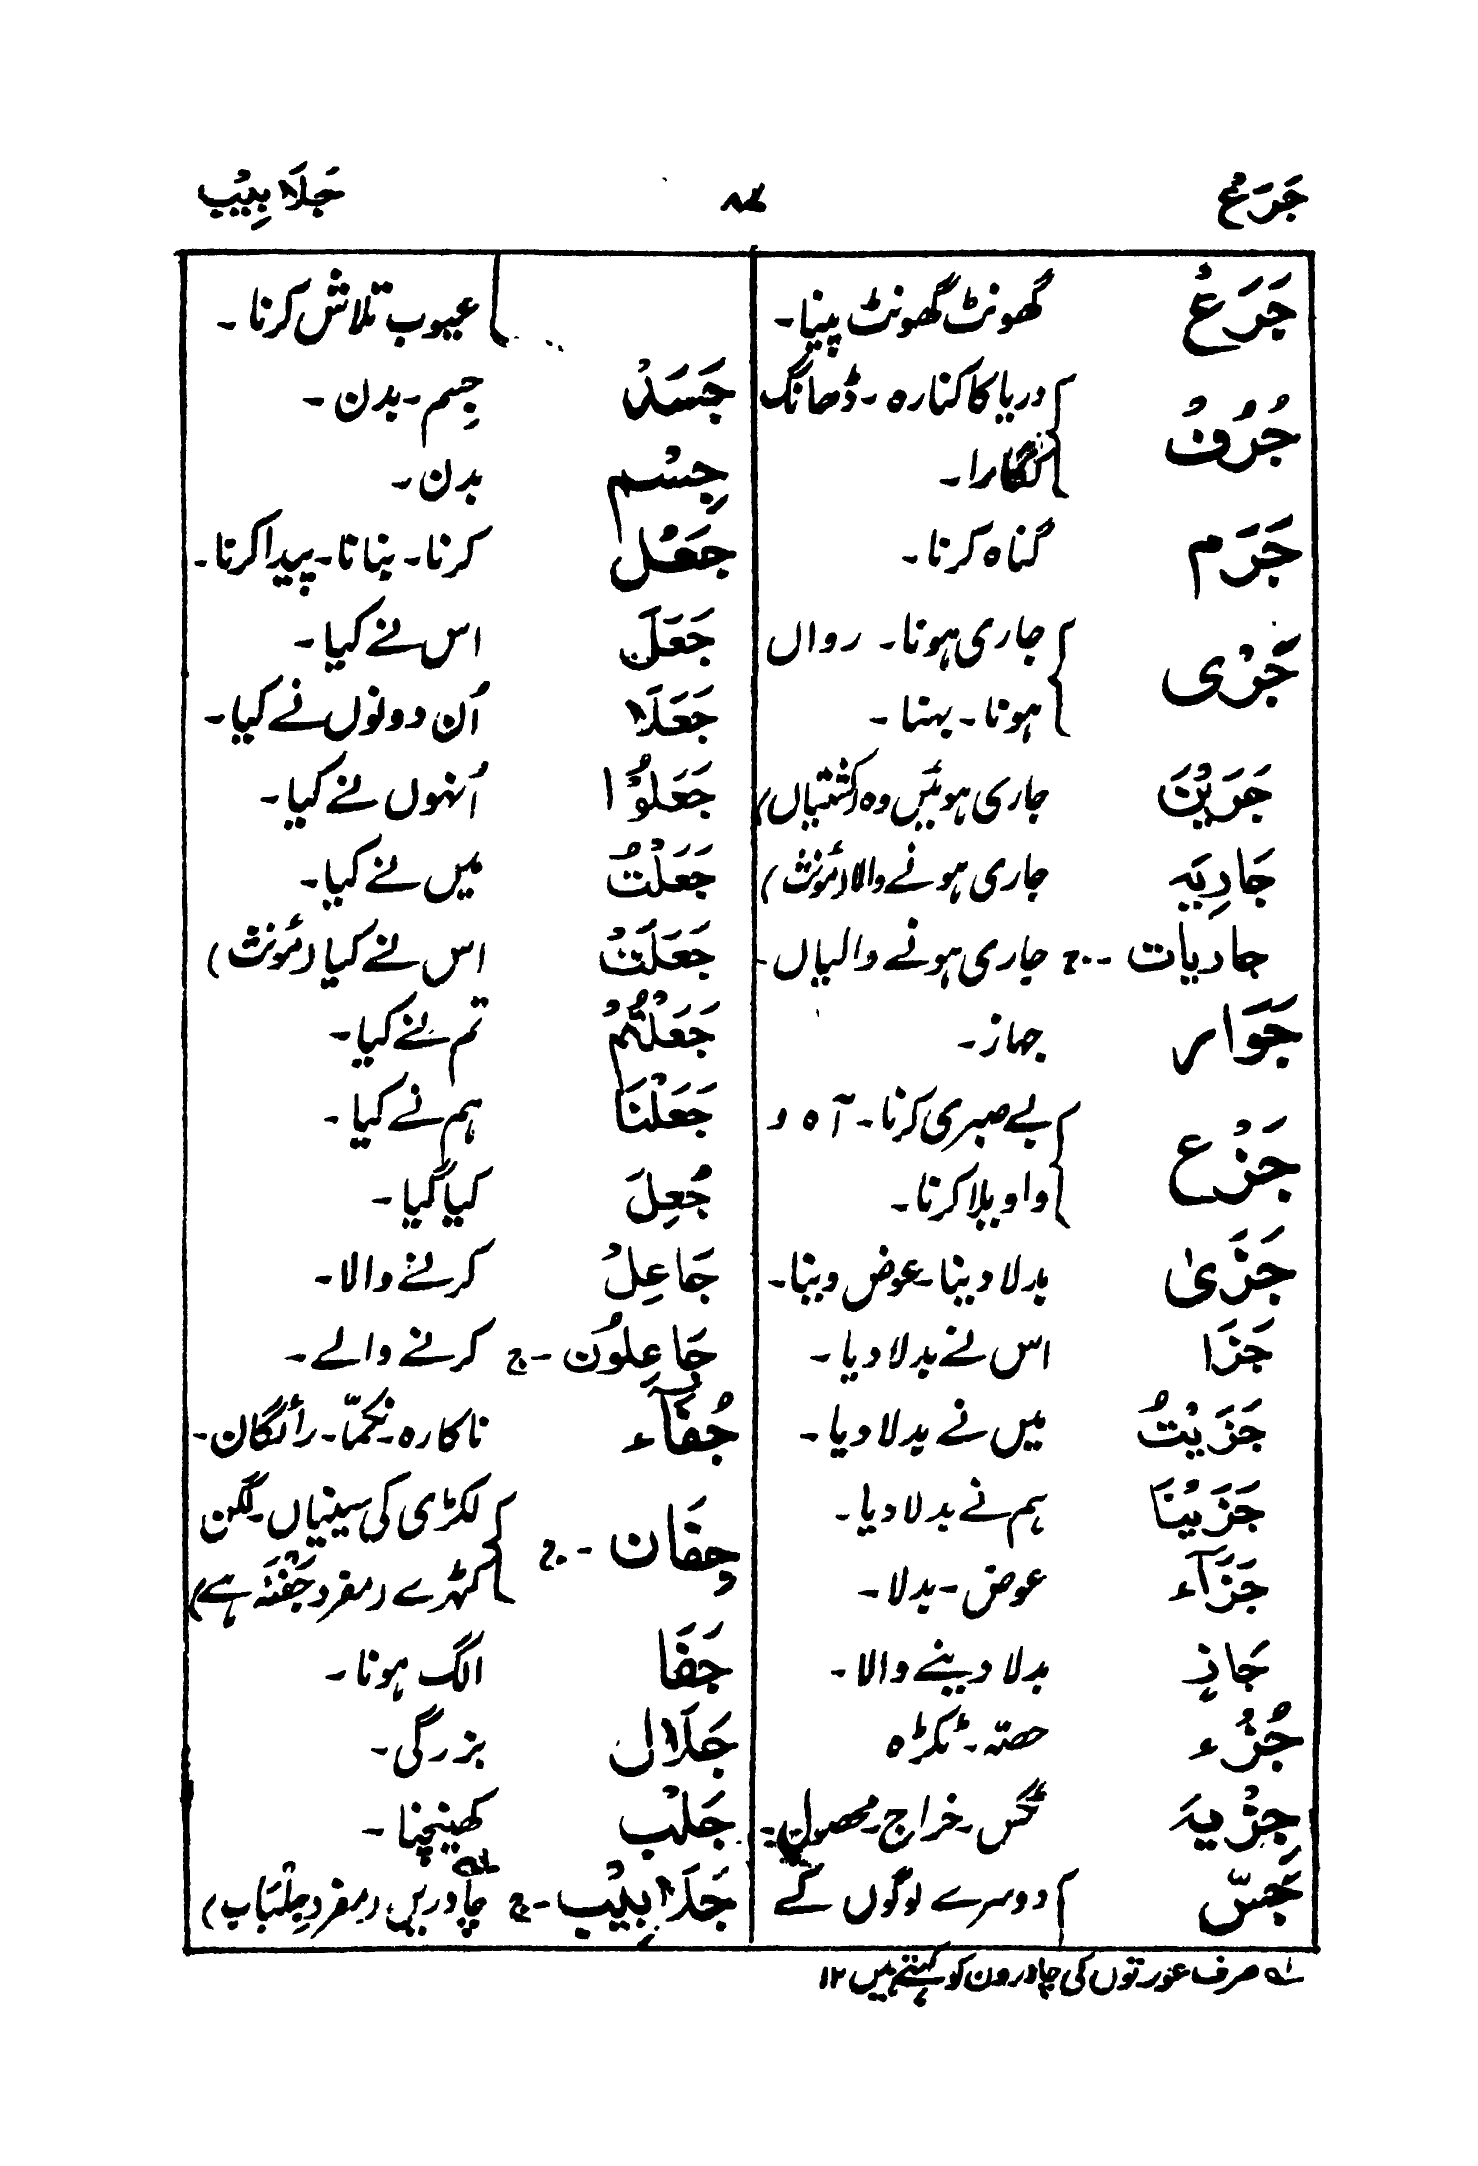 جَرَعٌ ۸۷ جَلَابِیْب
جَرَعٌ گھونٹ گھونٹ پینا۔
جُرُفٌ دریا کا کنارہ۔ ڈھانگ
کگارا۔
جَرَم گناہ کرنا۔
جَرْی جاری ہونا۔ رواں
ہونا۔ بہنا۔
جَرَیْنَ جاری ہوئیں وہ (کشتیاں)
جَارِیَہ جاری ہونے والا (مؤنث)
جاریات ۔ج جاری ہونے والیاں۔
جَوَار جہاز۔
جَزْع بے صبری کرنا۔ آہ و
واویلا کرنا۔
جَزَیٰ بدلا دینا۔ عوض دینا۔
جَزَا اس نے بدلا دیا۔
جَزَیْتُ میں نے بدلا دیا۔
جَزَیْنَا ہم نے بدلا دیا۔
جَزَآء عوض۔ بدلا۔
جَازٍ بدلا دینے والا۔
جُزْء حصّہ۔ ٹکڑہ
جِزْیَہ ٹکس۔ خراج۔ محصول۔
جَسّ دوسرے لوگوں کے
عیوب تلاش کرنا۔
جَسَدٌ جِسم۔ بدن۔
جِسْم بدن۔
جَعْل کرنا۔ بنانا۔ پیدا کرنا۔
جَعَلَ اس نے کیا۔
جَعَلَا اُن دونوں نے کیا۔
جَعَلُوْا اُنہوں نے کیا۔
جَعَلْتُ میں نے کیا۔
جَعَلَتْ اس نے کیا (مؤنث)
جَعَلْتُمْ تم نے کیا۔
جَعَلْنَا ہم نے کیا۔
جُعِلَ کیا گیا۔
جَاعِلُ کرنے والا۔
جَاعِلُوْن ۔ج کرنے والے۔
جُفَآء ناکارہ۔ نکمّا۔ رائگان۔
جِفَان ۔ج لکڑی کی سینیاں۔ لگن
کٹہرے (مفرد جَفْنَہ ہے)
جَفَا الگ ہونا۔
جَلَال بزرگی۔
جَلْب کھینچنا۔
جَلَابِیْب ۔ج چادریں (مفرد جِلْبَاب) لہ
لہ صرف عورتوں کی چادرون کو کہتے ہیں ۱۲